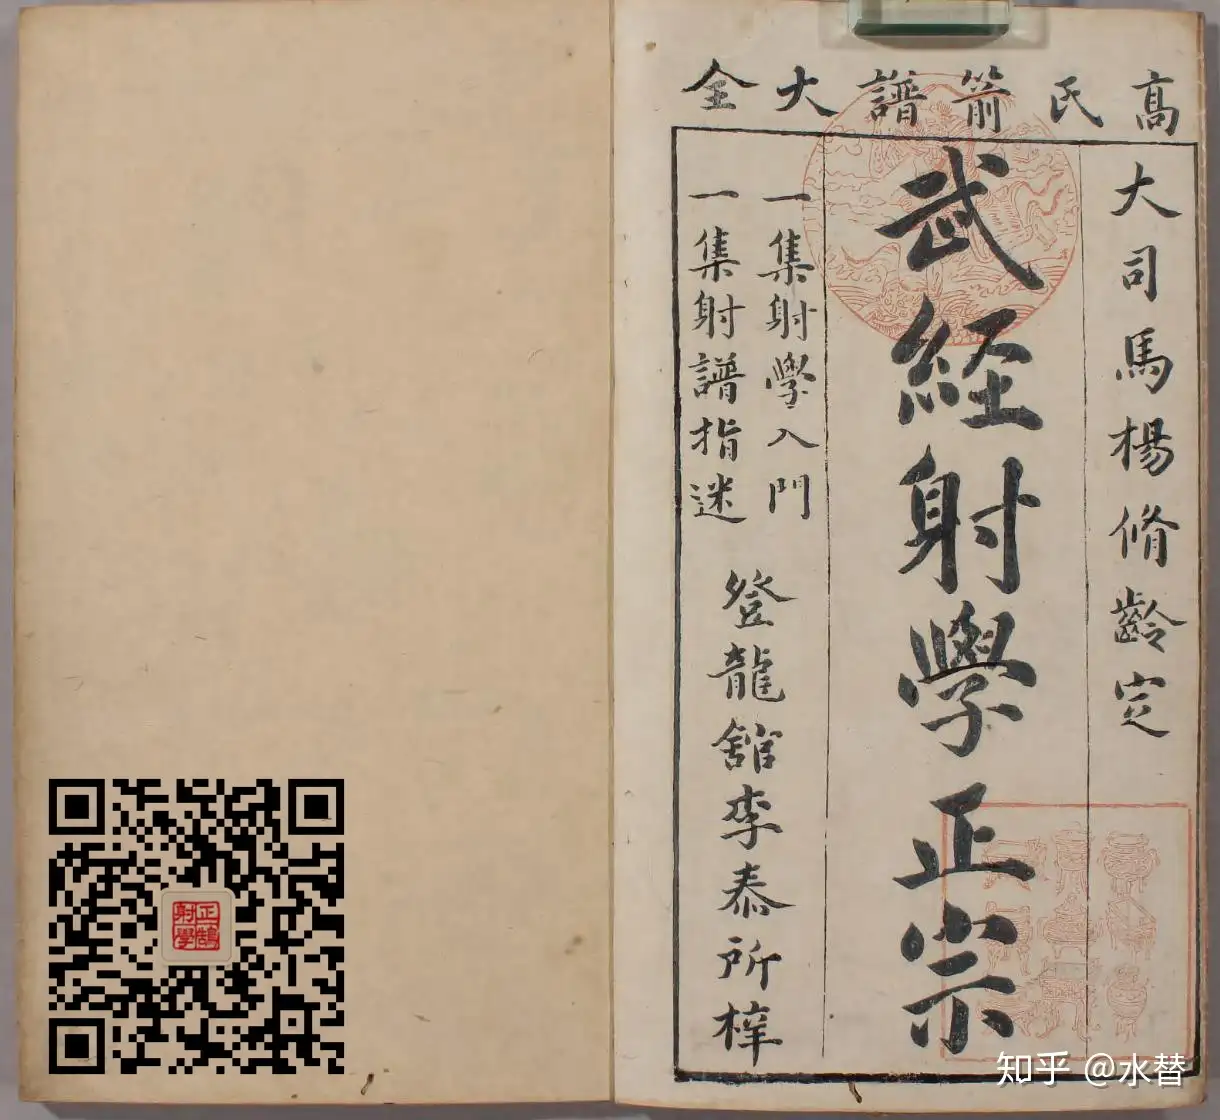 高氏箭譜大全
大司馬楊脩齡定
武經射學正宗
一集射學入門
一集射譜指迷
登龍館李泰所梓
正鵠
射學
知乎 @水替